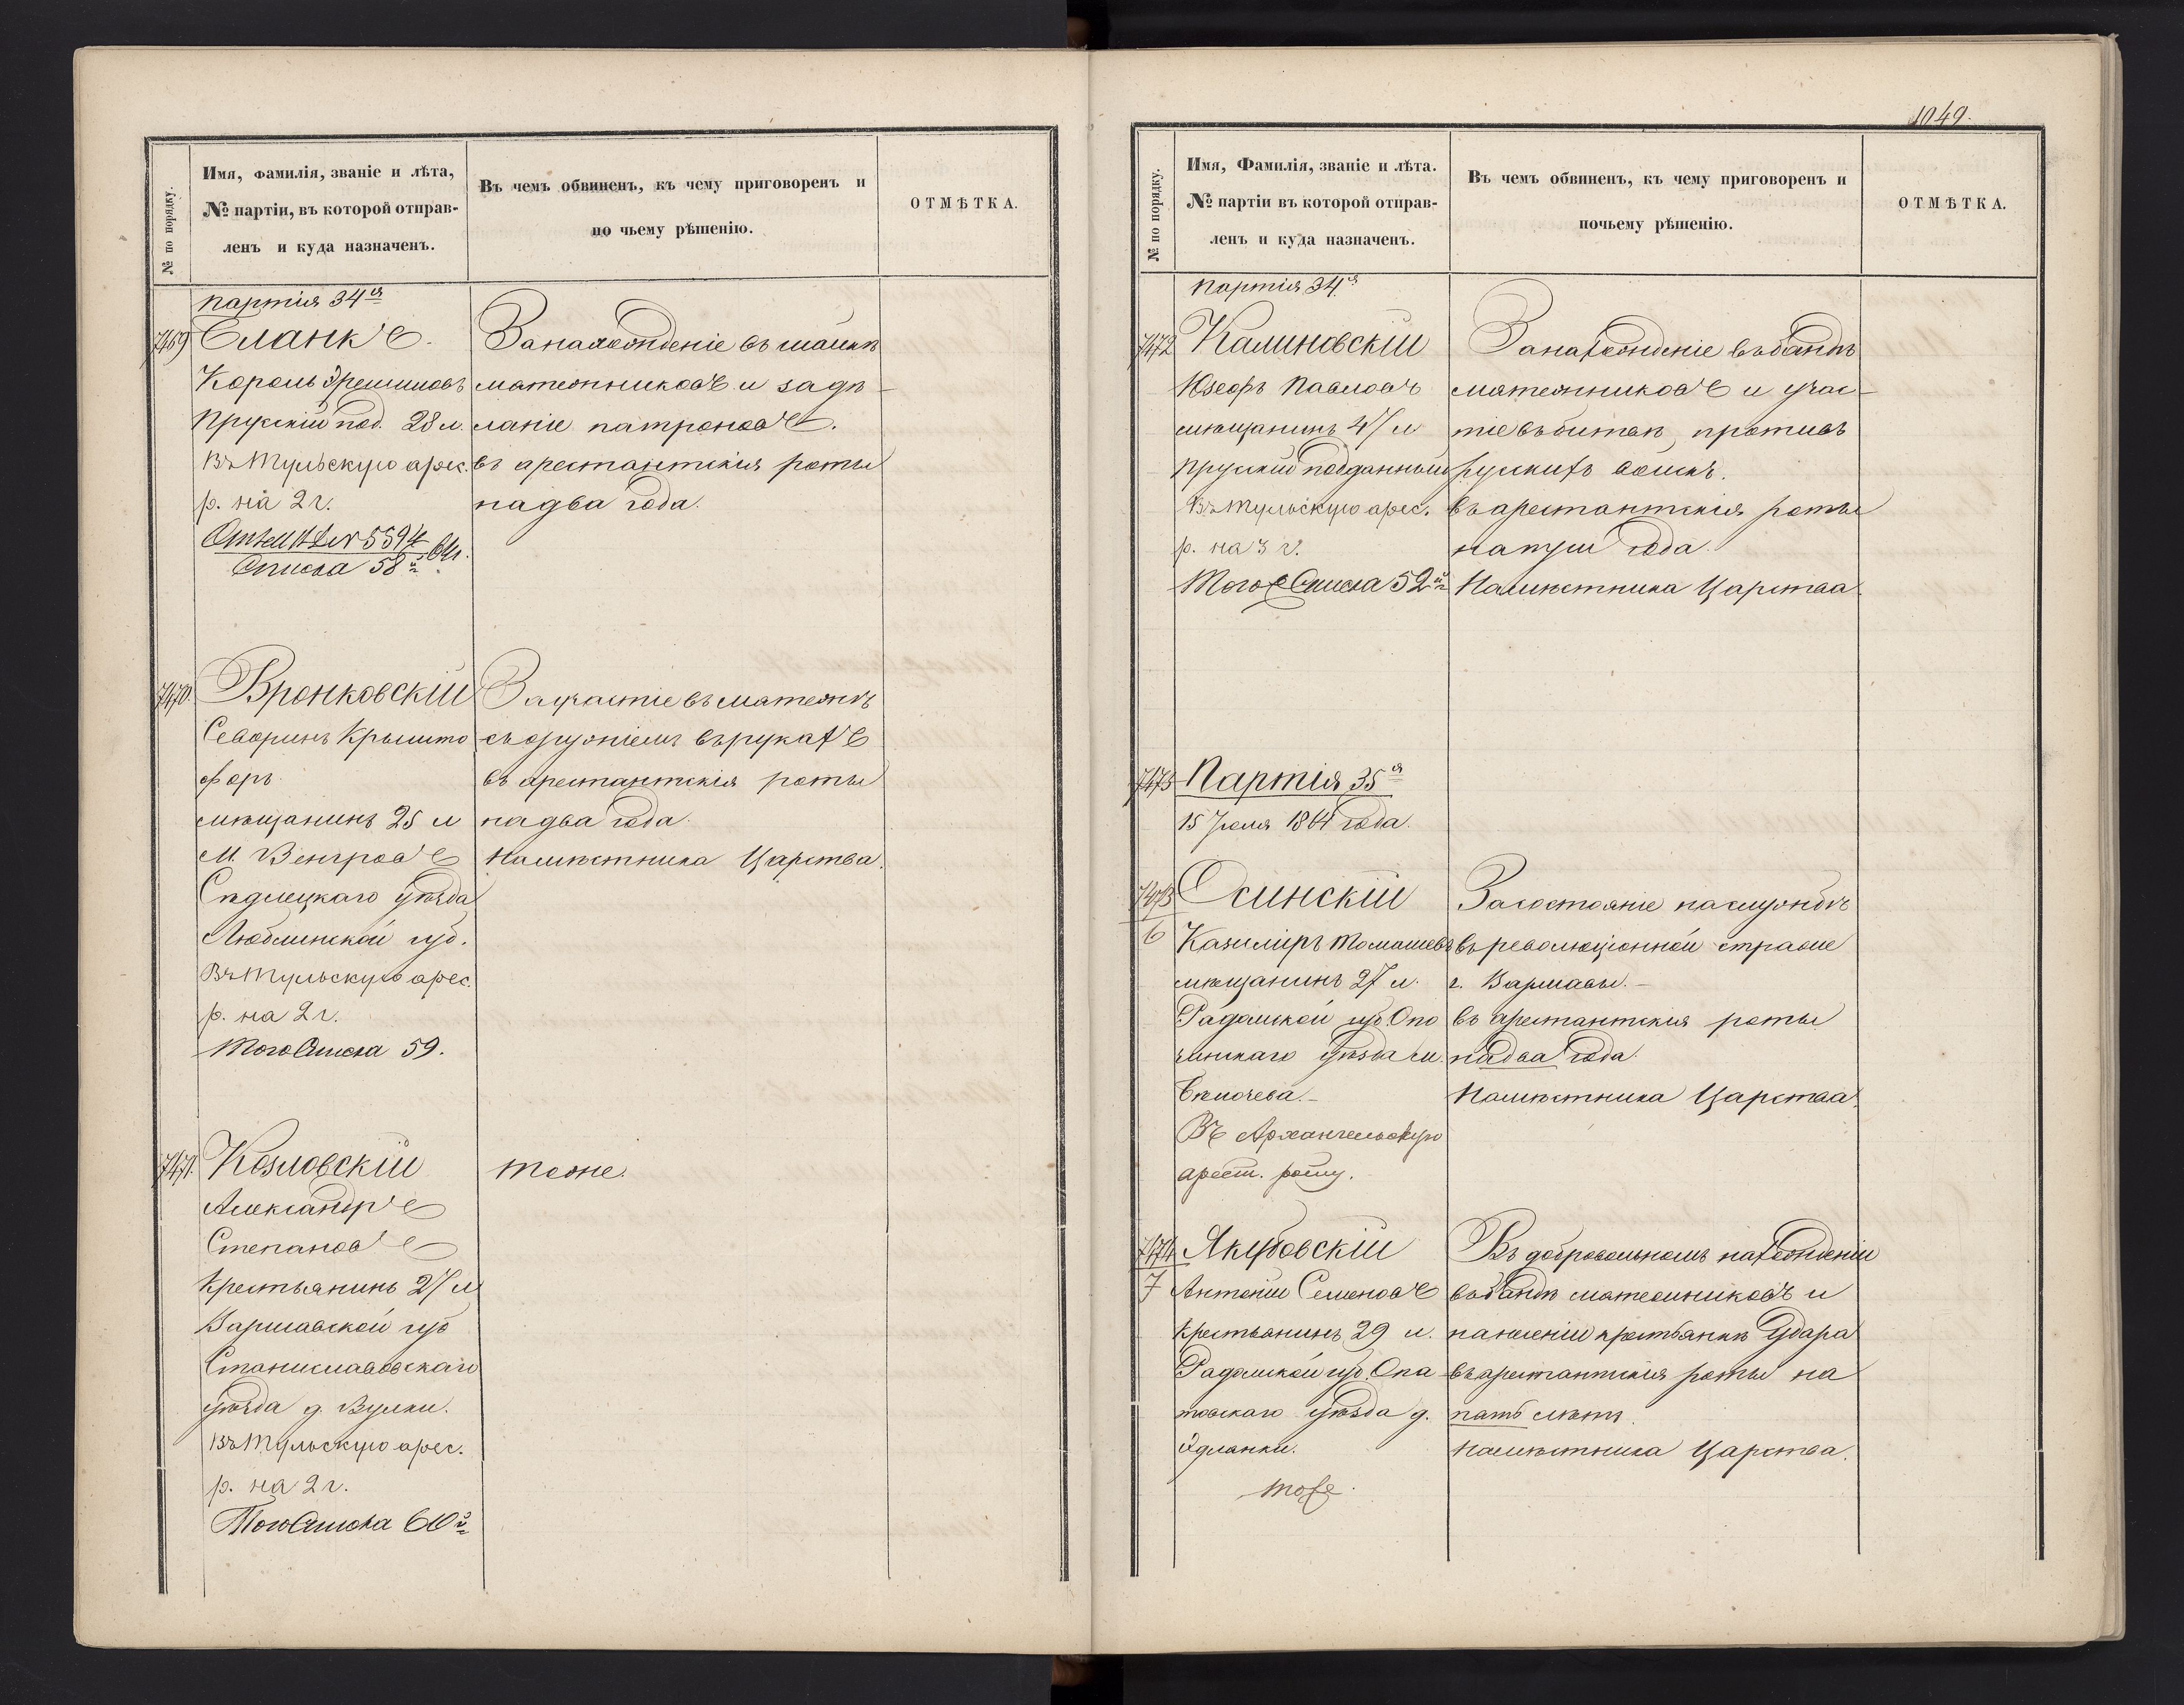 № по порядку.
Имя, фамилія, званіе и лѣта,
№ партіи, въ которой отправ-
ленъ и куда назначенъ.
Въ чемъ обвиненъ, къ чему приговоренъ и
по чьему рѣшенію.
ОТМѢТКА.
партія 34я
7469
Сланкъ
Кароль
Прускій под. 28 л
Въ Тульскую арес.
р. на 2 г.
5594
Списка 58й
За нахожденіе въ шайкѣ
мятежниковъ и задѣ-
ланіе патроновъ.
въ арестантскія роты
на два года.
7470.
Вронковскій
Северинъ Крышто
форъ
мѣщанинъ 25 л
м. Венгровъ
Сѣдлецкаго уѣзда
Люблинской губ.
Въ Тульскую арес.
р. на 2 г.
Того Списка 59.
За участіе въ мятежѣ
съ оружіемъ въ рукахъ
въ арестантскія роты
на два года.
Намѣстника Царства.
7471.
Козловскій
Александръ
Степановъ
Крестьянинъ 27 л
Варшавской губ
Станиславовскаго
уѣзда д. Вулки.
Въ Тульскую арес.
р. на 2 г.
Того Списка 60й
тоже.
1049.
№ по порядку.
Имя, Фамилія, званіе и лѣта.
№ партіи въ которой отправ-
ленъ и куда назначенъ.
Въ чемъ обвиненъ, къ чему приговоренъ и
почьему рѣшенію.
ОТМѢТКА.
партія 34я
7472
Калиновскій
Юзефъ Павловъ
мѣщанинъ 47 л
прускій подданный
Въ Тульскую арес.
р. на 3 г.
Того Списка 52й
За нахожденіе въ бандѣ
мятежниковъ и учас-
тіе въ битвѣ противъ
рускихъ войскъ.
въ арестантскія роты
на три года.
Намѣстника Царства.
7473
Партія 35я
15 Іюля 1864 года.
7473
6
Осинскій
Казиміръ Томашевъ
мѣщанинъ 27 л.
Радомской губ. Опо
чинскаго уѣзда м.
Въ Архангельскую
арест. роту.
За состояніе на службѣ
въ революціонной стражѣ
г. Варшавы.-
въ арестантскія роты
на два года.
Намѣстника Царства.
7474
7
Якубовскій
Антоній Семеновъ
Крестьянинъ 29 л.
Радомской губ. Опа
товскаго уѣзда д.
тоже.
Въ добровольномъ нахожденіи
въ бандѣ мятежниковъ и
нанесеніи крестьянкѣ удара
въ арестантскія роты на
пять лѣтъ.
Намѣстника Царства.